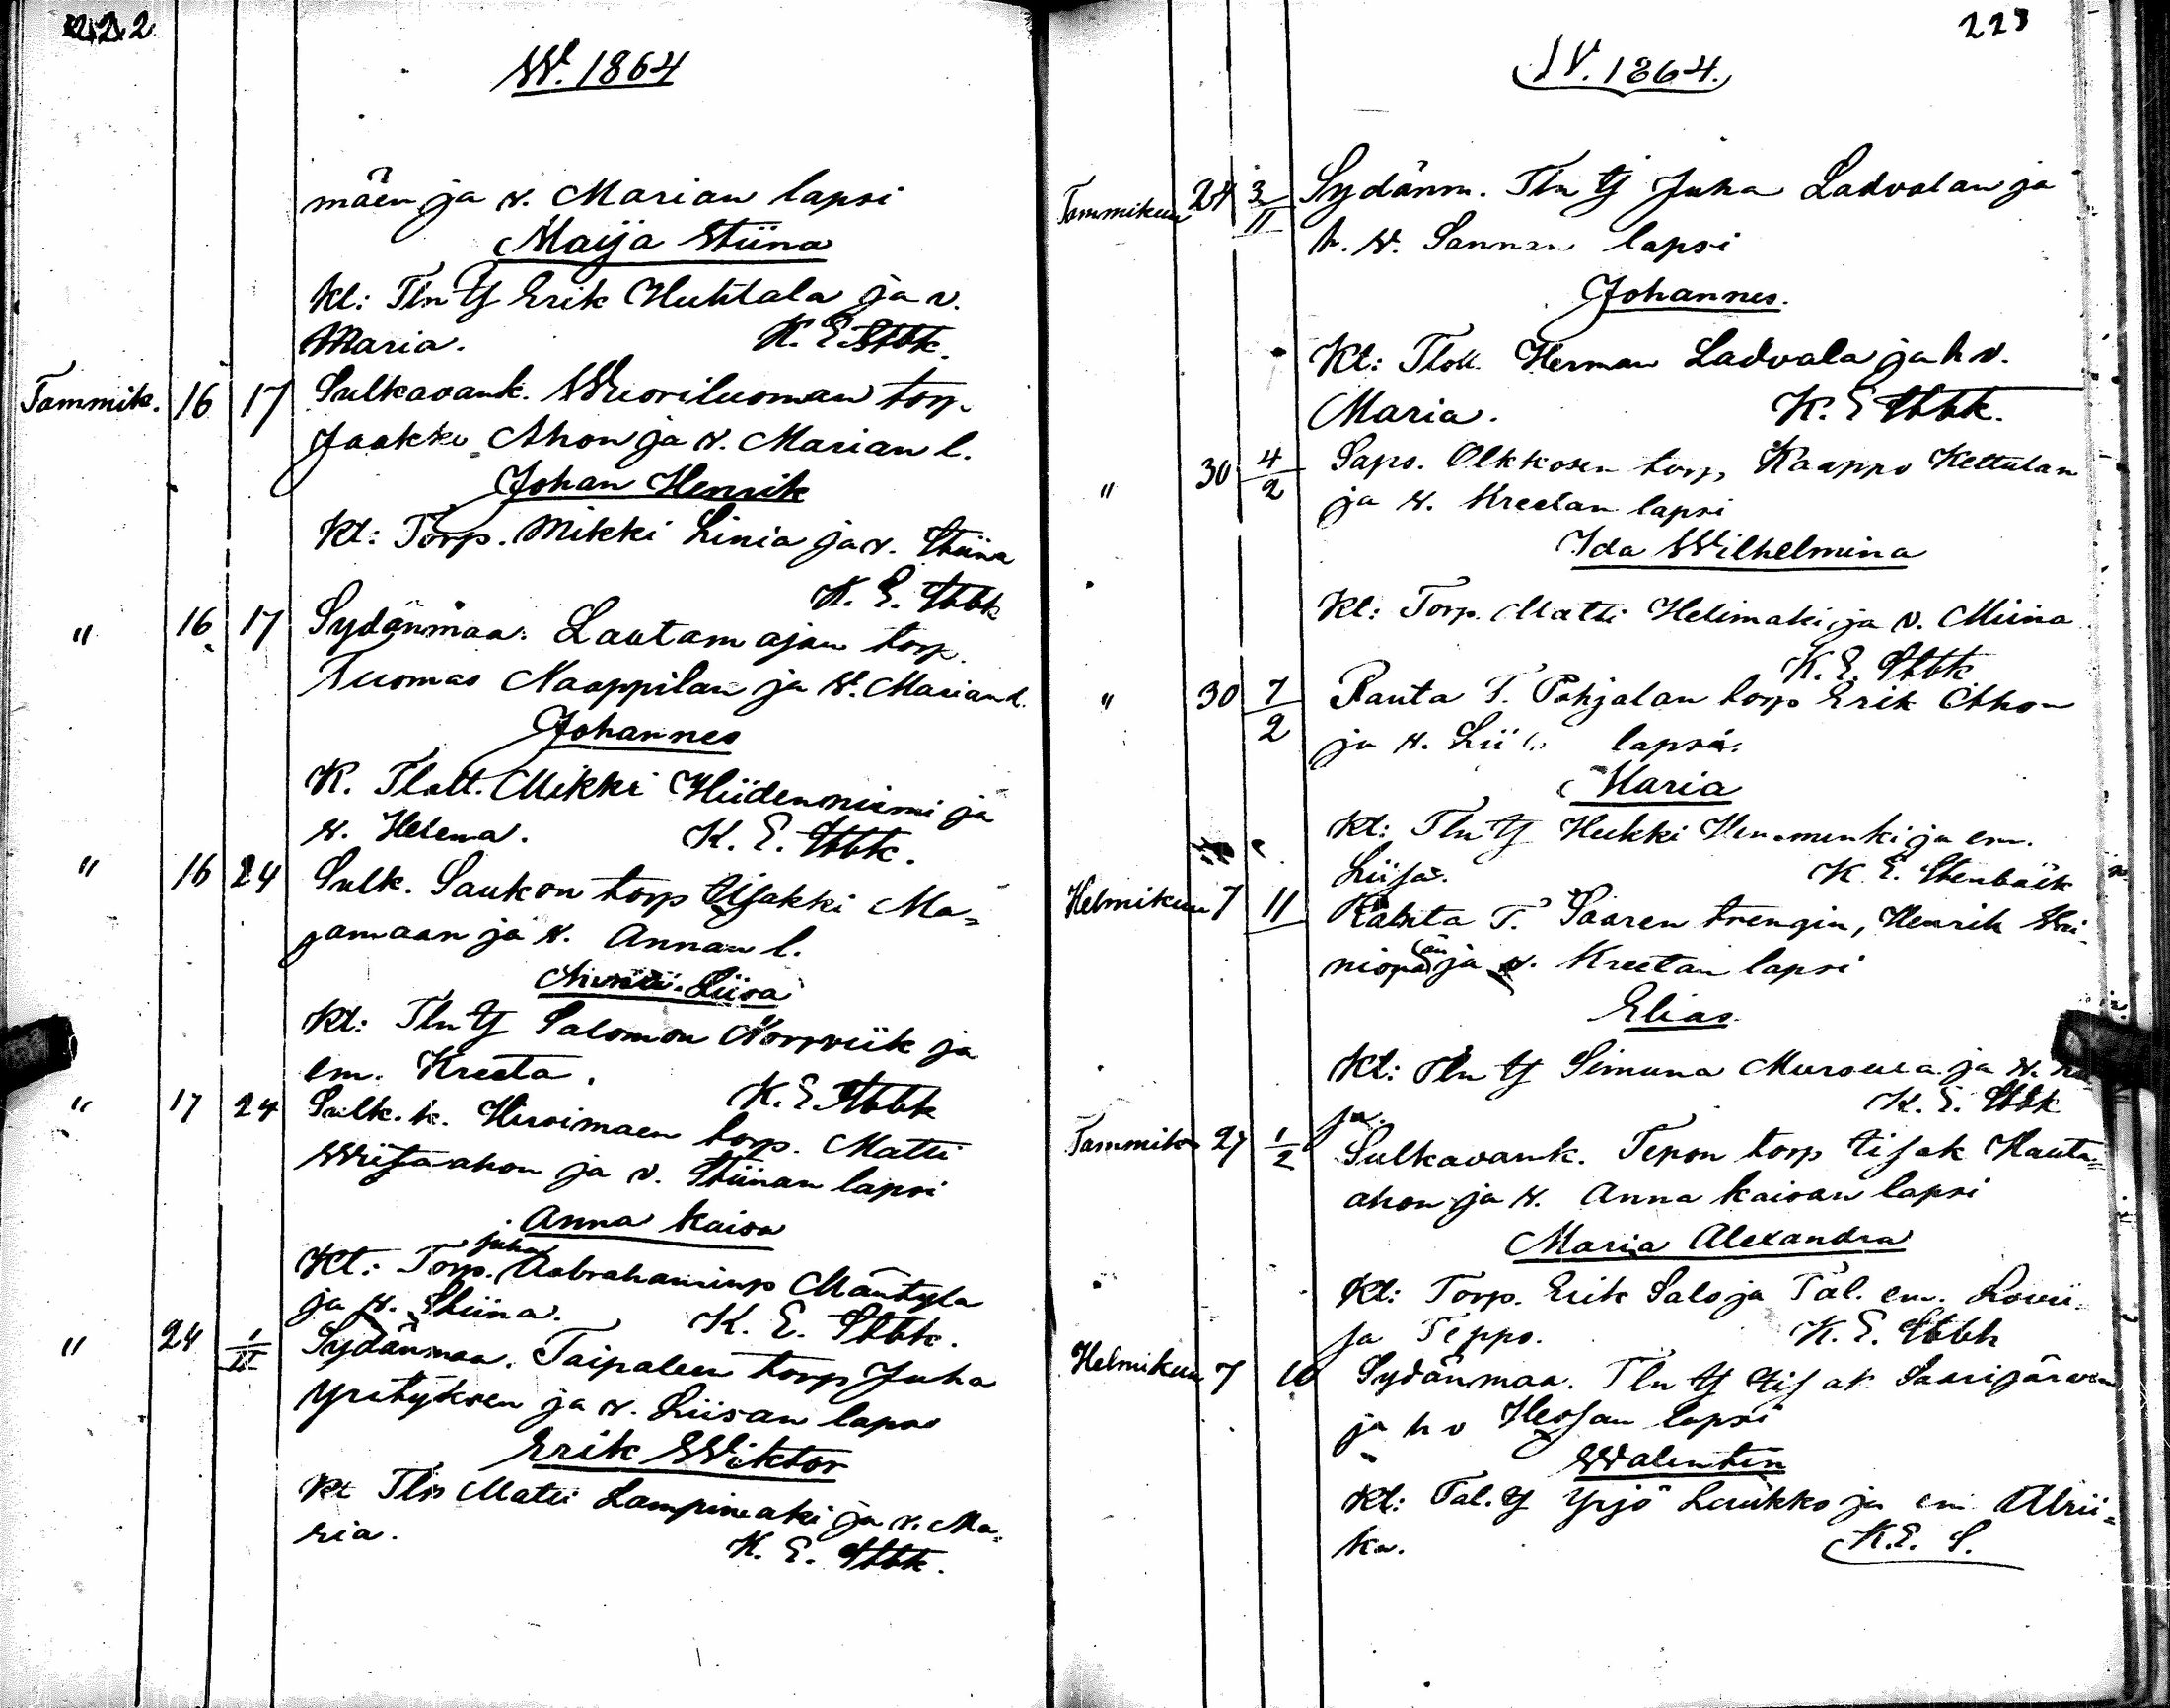 222
W. 1864
mäen ja v. Marian lapsi
Maija Stiina
Kt: Tln tj Erik Huhtala ja v.
Maria. K. E. Stbk.
Tammik. 16 17 Sulkavank. Wuoriluoman torp.
Jaakko Ahon ja v. Marian l.
Johan Henrik
Kt: Torp. Mikki Linia ja v. Stiina
K. E. Stbk
" 16 17 Sydänmaa. Lautamajan torp.
Tuomas Naappilan ja v. Marian l.
Johannes
K. Tlall. Mikki Hiidenniemi ja
v. Helena. K. E. Stbk.
" 16 24 Sulk. Saukon torp Iisakki Ma=
jamaan ja v. Annan l.
Liisa
Kt: Tln tj Salomon Norrviik ja
em. Kreeta. K. E. Stbk
" 17 24 Sulk. k. Hirsimaen torp. Matti
Wiitaahon ja v. Stiinan lapsi
Anna Kaisa
Juha
Kt: Torp. Aabrahaminp Mäntyla
ja v. Stiina. K. E. Stbk.
" 24 1/II Sydänmaa. Taipaleen torp Juha
Yrityksen ja v. Liisan lapsi
Erik Wiktor
Kt Tln Matti Lampimaki ja v. Ma=
ria. K. E. Stbk.
223
W. 1864.
Tammikuu 24 3/II Sydänm. Tln tj Juha Ladvalan ja
h. v. Sannan lapsi
Johannes.
Kt: Tloll. Herman Ladvala ja h v.
Maria. K. E. Stbk.
" 30 4/2 Saps. Olkkosen torp, Kaappo Kettulan
ja v. Kreetan lapsi
Ida Wilhelmina
Kt: Torp. Matti Helimaki ja v. Miina
K. E. Stbk
" 30 7/2 Rauta T. Pohjalan torp Erik Ahon
ja v. lapsi.
Maria
Kt: Tln tj Heikki ja em.
Liisa. K. E. Stenbäck
Helmikuu 7 11 Rauta T. Saaren trengin, Henrik
än ja v. Kreetan lapsi
Elias.
Kt: Tln tj Simuna ja v.
ja. K. E. Stbk
Tammik 27 1/2 Sulkavank. Tepon torp Iisak Hauta=
ahon ja v. Anna Kaisan lapsi
Maria Alexandra
Kt: Torp. Erik Salo ja Tal. em. Lovii=
sa Teppo. K. E. Stbk
Helmikuu 7 10 Sydänmaa. Tln tj Iisak Saarijärven
ja h v lapsi
Walentin
Kt: Tal. tj Yrjö Luukko ja em Ulrii=
ka. K. E. S.